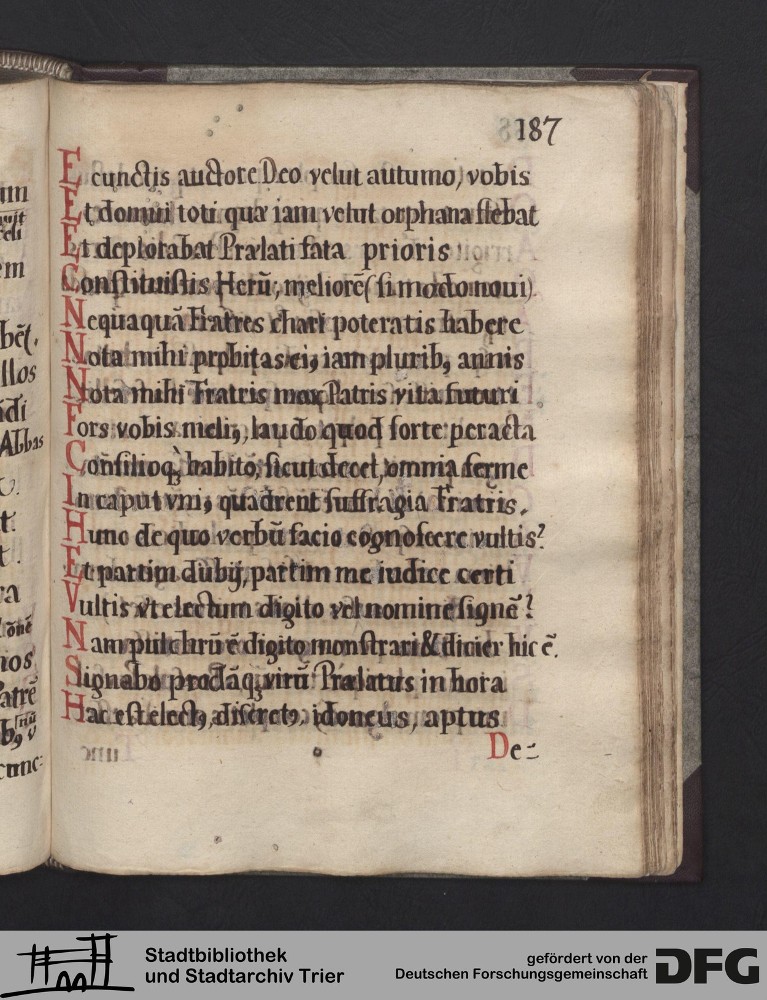 187
E cunctis auctore Deo velut autumo, vobis
Et domui toti quæ iam velut orphana flebat
Et deplorabat Prælati fata prioris
Constituistis Herū; meliorē (si modo noui)
Nequaquā Fratres chari poteratis habere
Nota mihi probitas ei9 iam plurib9 annis
Nota mihi Fratris mox Patris vita futuri
Fors vobis meli9, laudo quod forte peracta
Consilioq3 habito, sicut decet, omnia ferme
In caput vni9 quadrent suffragia Fratris.
Hunc de quo verbū facio cognoscere vultis?
Et partim dubij, partim me iudice certi
Vultis vt electum digito vel nomine signē?
Nam pulchrū ē digito monstrari & dicier hic ē.
Signabo prodāq3 virū Prælatus in hora
Hac est elect9, discret9, idoneus, aptus
De-
um
em
bēt.
llos
adi
Abbas
t.
t.
ra
ios
atrē
cunc-
Stadtbibliothek
und Stadtarchiv Trier
gefördert von der
Deutschen Forschungsgemeinschaft
DFG